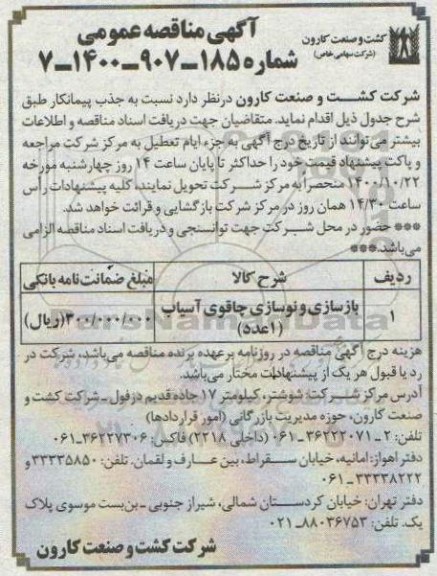 کشت و صنعت کارون
(شرکت سهامی خاص)
آگهی مناقصه عمومی
شماره ۱۸۵-۹۰۷-۱۴۰۰-۷
شرکت کشت و صنعت کارون درنظر دارد نسبت به جذب پیمانکار طبق
شرح جدول ذیل اقدام نماید. متقاضیان جهت دریافت اسناد مناقصه و اطلاعات
بیشتر می‌توانند از تاریخ درج آگهی به جزء ایام تعطیل به مرکز شرکت مراجعه
و پاکت پیشنهاد قیمت خود را حداکثر تا پایان ساعت ۱۴ روز چهارشنبه مورخه
۱۴۰۰/۱۰/۲۲ منحصراً به مرکز شرکت تحویل نمایند. کلیه پیشنهادات رأس
ساعت ۱۴/۳۰ همان روز در مرکز شرکت بازگشایی و قرائت خواهد شد.
*** حضور در محل شرکت جهت توانسنجی و دریافت اسناد مناقصه الزامی
می‌باشد.***
ردیف شرح کالا مبلغ ضمانت‌نامه بانکی
۱ بازسازی و نوسازی چاقوی آسیاب (۱عدد) ۳۰۰/۰۰۰/۰۰۰(ریال)
هزینه درج آگهی مناقصه در روزنامه برعهده برنده مناقصه می‌باشد، شرکت در
رد یا قبول هر یک از پیشنهادات مختار می‌باشد.
آدرس مرکز شرکت: شوشتر، کیلومتر ۱۷ جاده قدیم دزفول - شرکت کشت و
صنعت کارون، حوزه مدیریت بازرگانی (امور قراردادها)
تلفن: ۲-۳۶۲۲۲۰۷۱-۰۶۱ (داخلی ۲۲۱۸) فاکس: ۳۶۲۲۷۳۰۶-۰۶۱
دفتر اهواز: امانیه، خیابان سقراط، بین عارف و لقمان. تلفن: ۳۳۳۳۵۸۵۰ و
۳۳۳۳۸۲۲۲-۰۶۱
دفتر تهران: خیابان کردستان شمالی، شیراز جنوبی - بن‌بست موسوی پلاک
یک. تلفن: ۸۸۰۳۶۷۵۳-۰۲۱
شرکت کشت و صنعت کارون